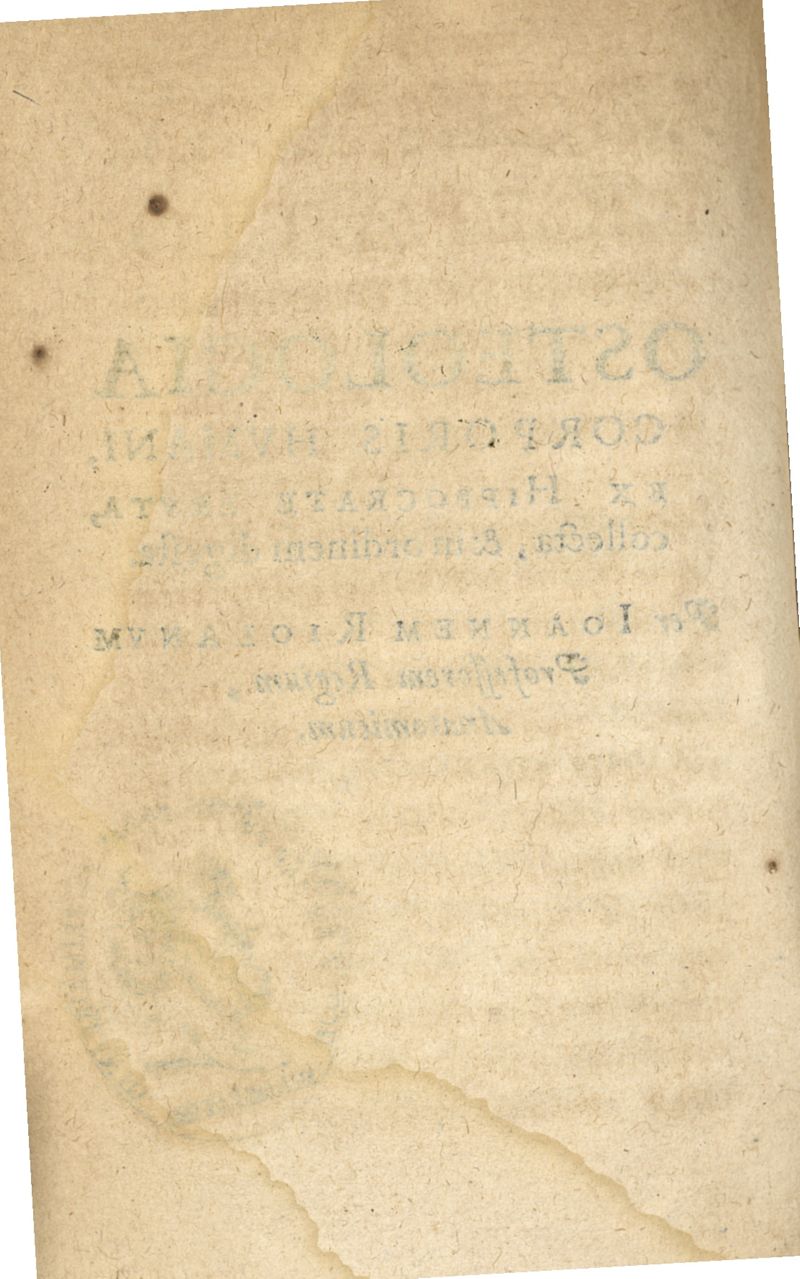 OSTEOLOGIA
CORPORIS HVMANI,
EX HIPPOCRATE
collecta, & in ordinem digesta.
Per IOANNEM RIOLANVM
Professorem Regium,
Anatomicum.